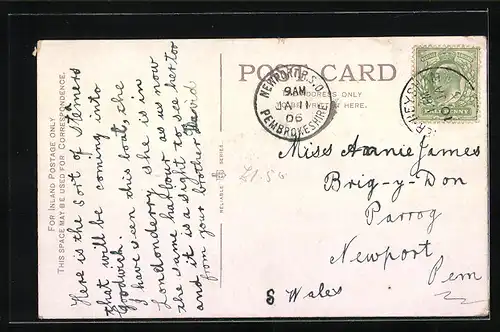 FOR INLAND POSTAGE ONLY
THIS SPACE MAY BE USED FOR CORRESPONDENCE.
Here is the sort of Stemers
that will be coming into
Goodwick.
I have seen this boat, she is in
Londonderry she is in
the same harbour as us now
and it is a sight to see her too
from your brother David
RELIABLE SERIES.
POST CARD
ADDRESS ONLY
HERE.
NEWPORT R.S.O.
9AM
JA 11
06
PEMBROKESHIRE
Miss Annie James
Brig-y-Don
Parrog
Newport
Pem
S Wales
£1.50